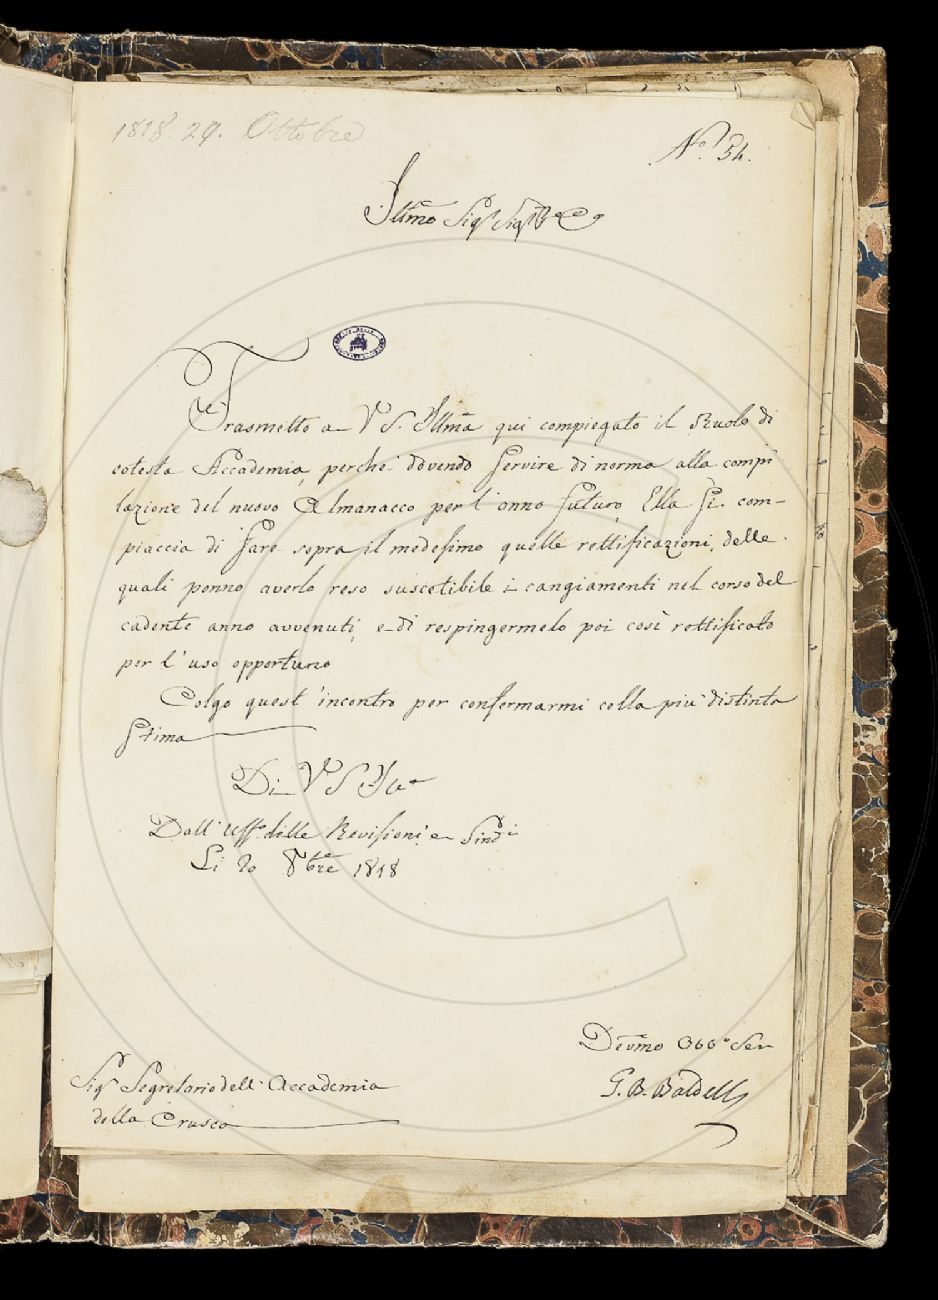 1818. 29. Ottobre
N.º 54.
Illmo Sigr Sigr
Trasmetto a VS. Illma qui compiegato il Ruolo di
cotesta Accademia, perchè dovendo servire di norma alla compi
lazione del nuovo Almanacco per l'anno futuro, Ella si com-
piaccia di fare sopra il medesimo quelle rettificazioni, delle
quali ponno averlo reso suscetibile i cangiamenti nel corso del
cadente anno avvenuti, e di respingermelo poi così rettificato
per l'uso opportuno
Colgo quest'incontro per confermarmi colla più distinta
stima
Di VS Illa
Dall' Uffo delle Revisioni, e Sindi
Li 8bre 1818
Devmo Obbo Ser
G. B. Baldelli
Sigr Segretario dell' Accademia
della Crusca